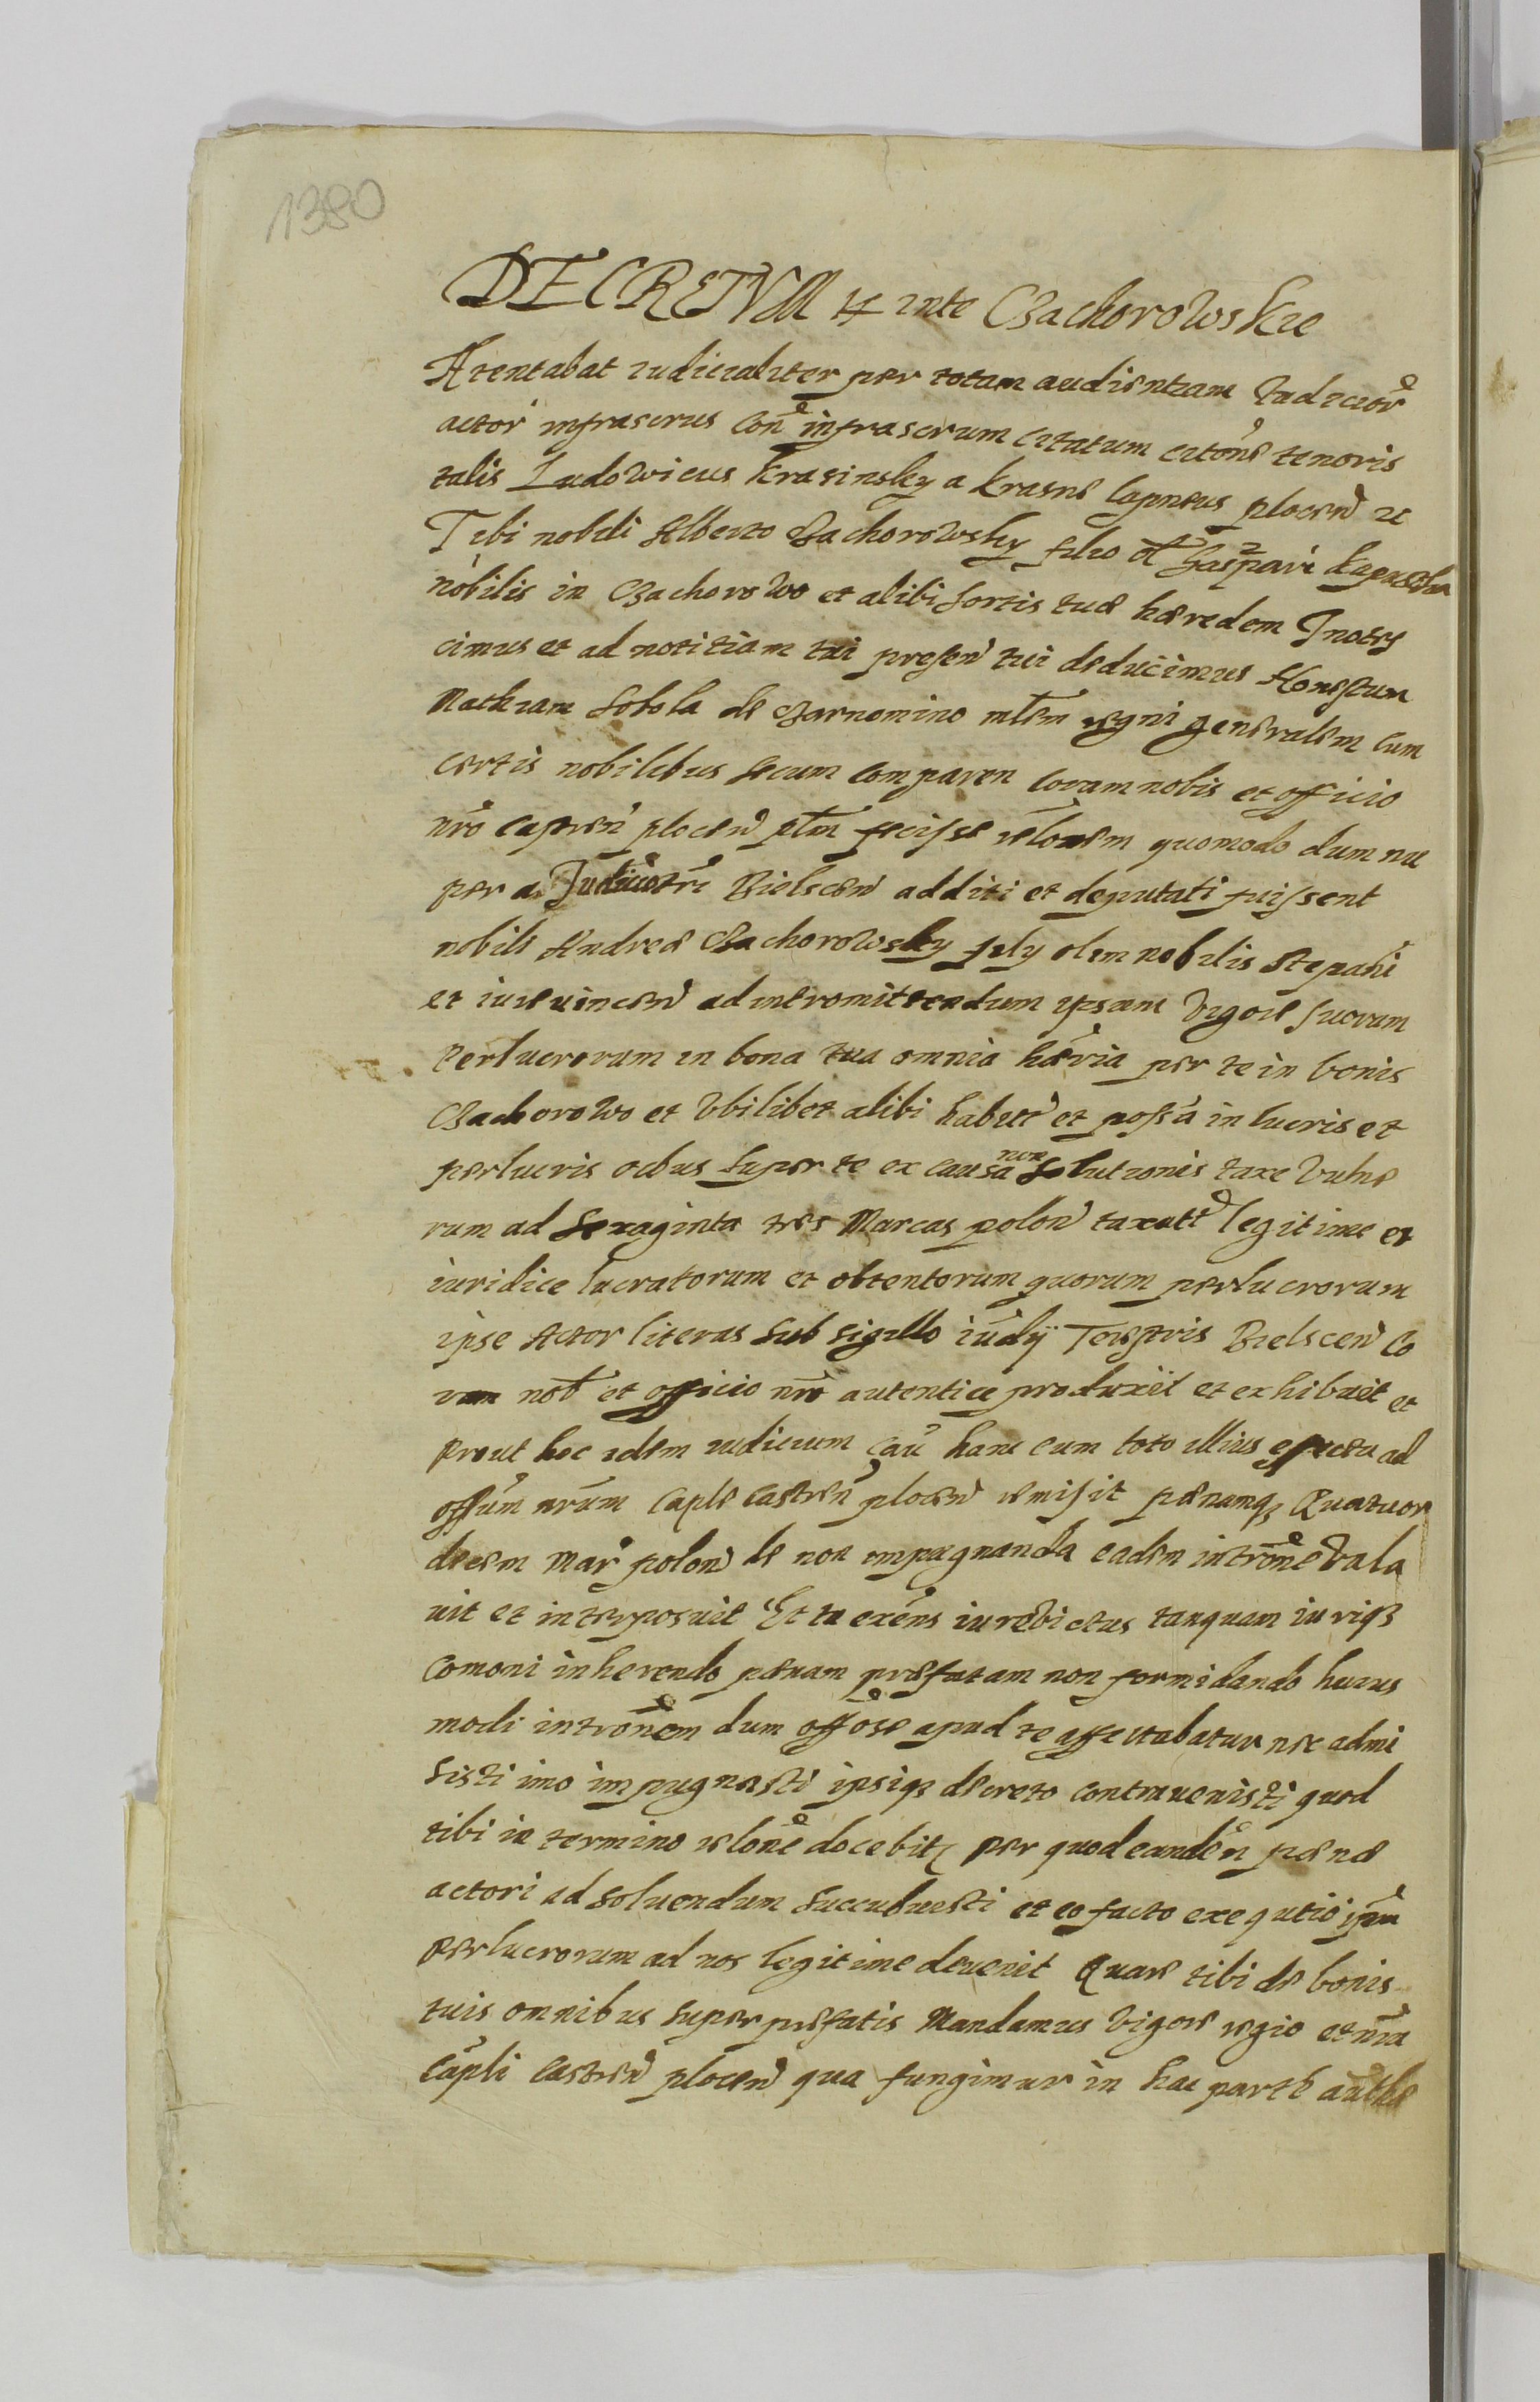 1380
DECRETVM inte Czachorowskie
Atentabat iudicialiter per totam audientiam
actor infrascrus Con infrascrum citatum citone tenoris
talis Ludowicus Krasinsky a Krasne Capneus plocen
Tibi nobili Alberto Czachorowsky filio ol Gaspari
nobilis in Czachorowo et alibi sortis tuæ hæredem Innotes
cimus et ad notitiam tui presen tui deducimus Honestum
Mathiam Sobola de Czarnomino mtem regni generalem Cum
certis nobilibus Secum Comparen Coram nobis et officio
nro capten plocen ptm fecisse relonem quomodo dum nu
per a Bielscen additi et deputati fuissent
nobili Andreæ Czachorowsky fily olim nobilis Stepani
et iure vincen ad intromittendum ipsum Vigore suorum
Perlucrorum in bona tua omnia hæria per te in bonis
Czachorowo et Vbilibet alibi habiti et possa in lucris et
perlucris octus Super te ex causa non Solutionis taxe Vulne
rum ad Sexaginta tres Marcas polon taxati legitime et
iuridice lucratorum et obtentorum quorum perlucrorum
ipse Actor literas Sub sigillo iudÿ Terstris Bielscen Co
ram nob et officio nro autentice produxit et exhibuit et
prout hoc idem iudicium cau hanc cum toto illius effectu ad
offium nrum Caple Castren plocen remisit pænamq Quatuor
decem Mar polon de non impugnanda eadem introne Vala
uit et interposuit Et tu exens iurebictus tanquam iuriq
Comoni inherendo pænam præfatam non formidando huius
modi intronem dum offose apud te affectabatur nec admi
sisti imo impugnasti ipsiq decreto contrauenisti quod
tibi in termino relone docebit per quod eanden pænæ
actori ad soluendum Succubuisti et eo facto exequtio
perlucrorum ad nos legitime deuenit Quare tibi de bonis
tuis omnibus Super prefatis Mandamus Vigore regio et nra
Capli Castren plocen qua fungimur in hac parte authe